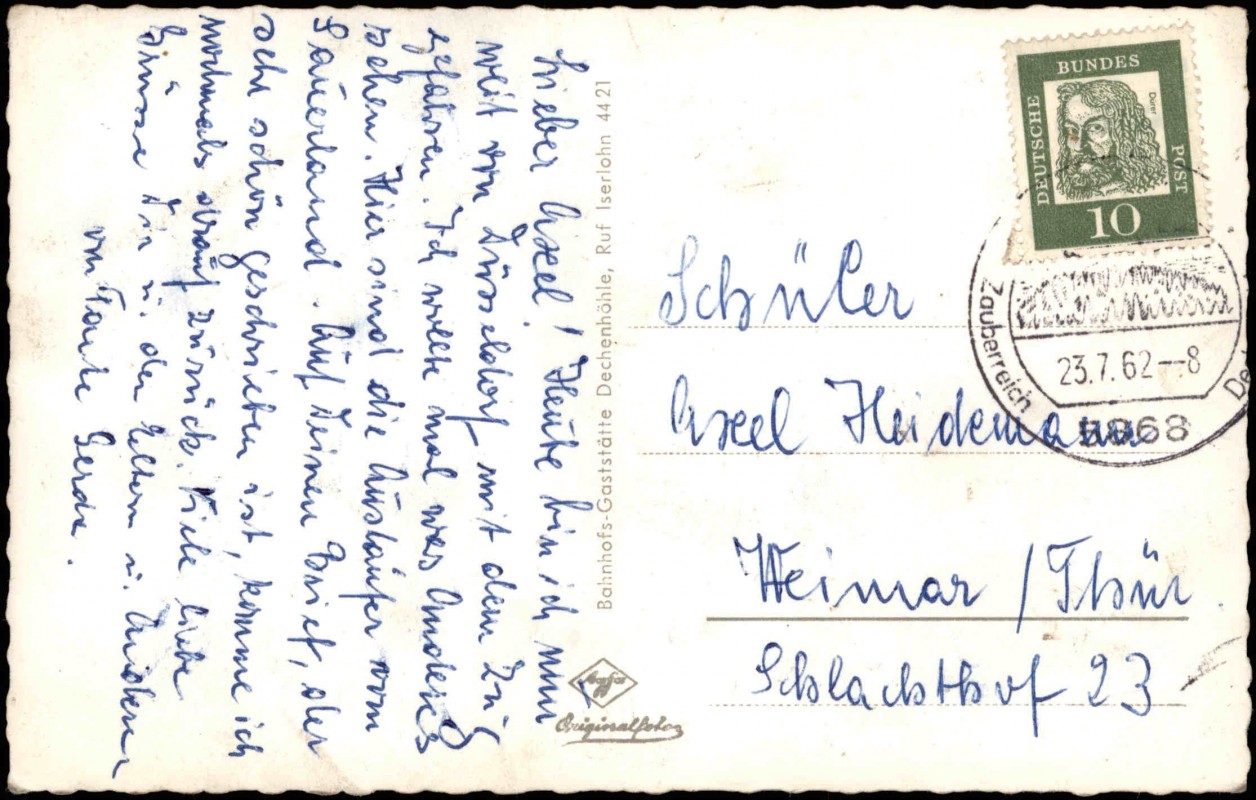 Lieber Axel! Heute bin ich nun
weit von Düsseldorf mit dem Zug
gefahren. Ich wollte mal was Anderes
sehen. Hier sind die Ausläufer vom
Sauerland. Auf Deinen Brief, der
sehr schön geschrieben ist, komme ich
nochmals drauf zurück. Viele liebe
Grüsse Dir u. den Eltern u.
von Tante Gerda.
Bahnhofs-Gaststätte Dechenhöhle, Ruf Iserlohn 4421
Agfa
Originalfoto
DEUTSCHE
BUNDES
POST
Dürer
10
Zauberreich
De
23.7.62—8
5868
Schüler
Axel Heidemann
Weimar / Thür.
Schlachthof 23